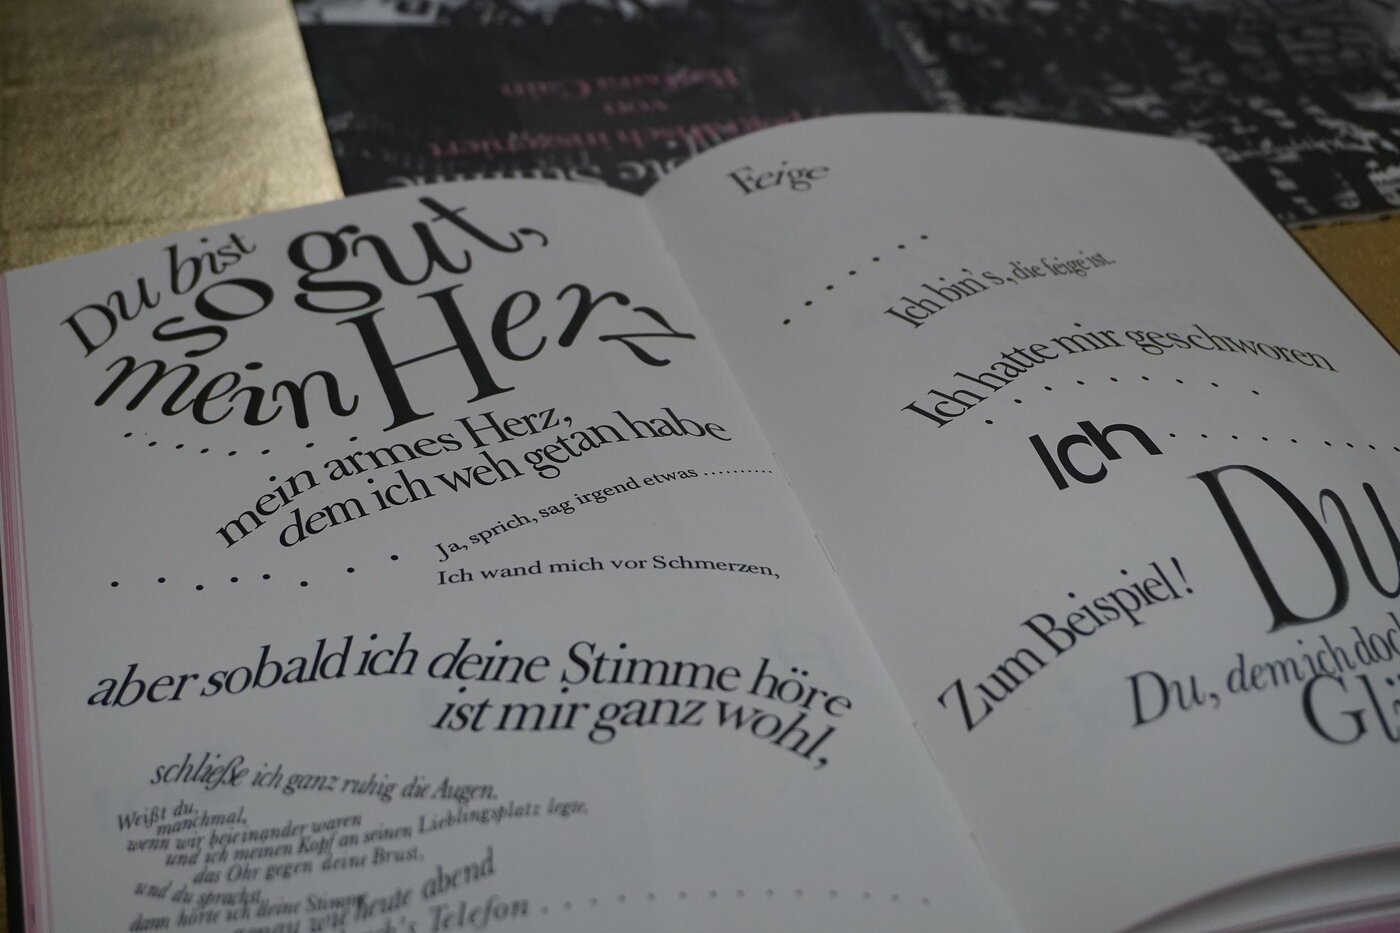 Du bist
so gut,
mein Herz
mein armes Herz,
dem ich weh getan habe
Ja, sprich, sag irgend etwas ..........
Ich wand mich vor Schmerzen,
aber sobald ich deine Stimme höre
ist mir ganz wohl,
schließe ich ganz ruhig die Augen.
Weißt du,
manchmal,
wenn wir beieinander waren
und ich meinen Kopf an seinen Lieblingsplatz legte,
das Ohr gegen deine Brust,
und du sprachst,
dann hörte ich deine Stimme
genau wie heute abend
Telefon
Feige
Ich bin's, die feige ist.
Ich hatte mir geschworen
Ich
Du
Zum Beispiel!
Du, dem ich doch
Glü
von
Barbara Cain